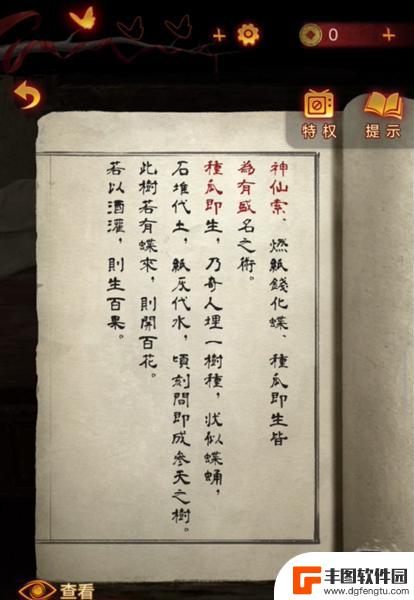 0
特权
提示
神仙索、燃紙錢化蝶、種瓜即生皆
為有盛名之術。
種瓜即生，乃奇人埋一樹種，狀似蝶蛹，
石堆代土，紙灰代水，頃刻間即成參天之樹。
此樹若有蝶來，則開百花。
若以酒灌，則生百果。
查看
丰图软件园
www.dgfengtu.com